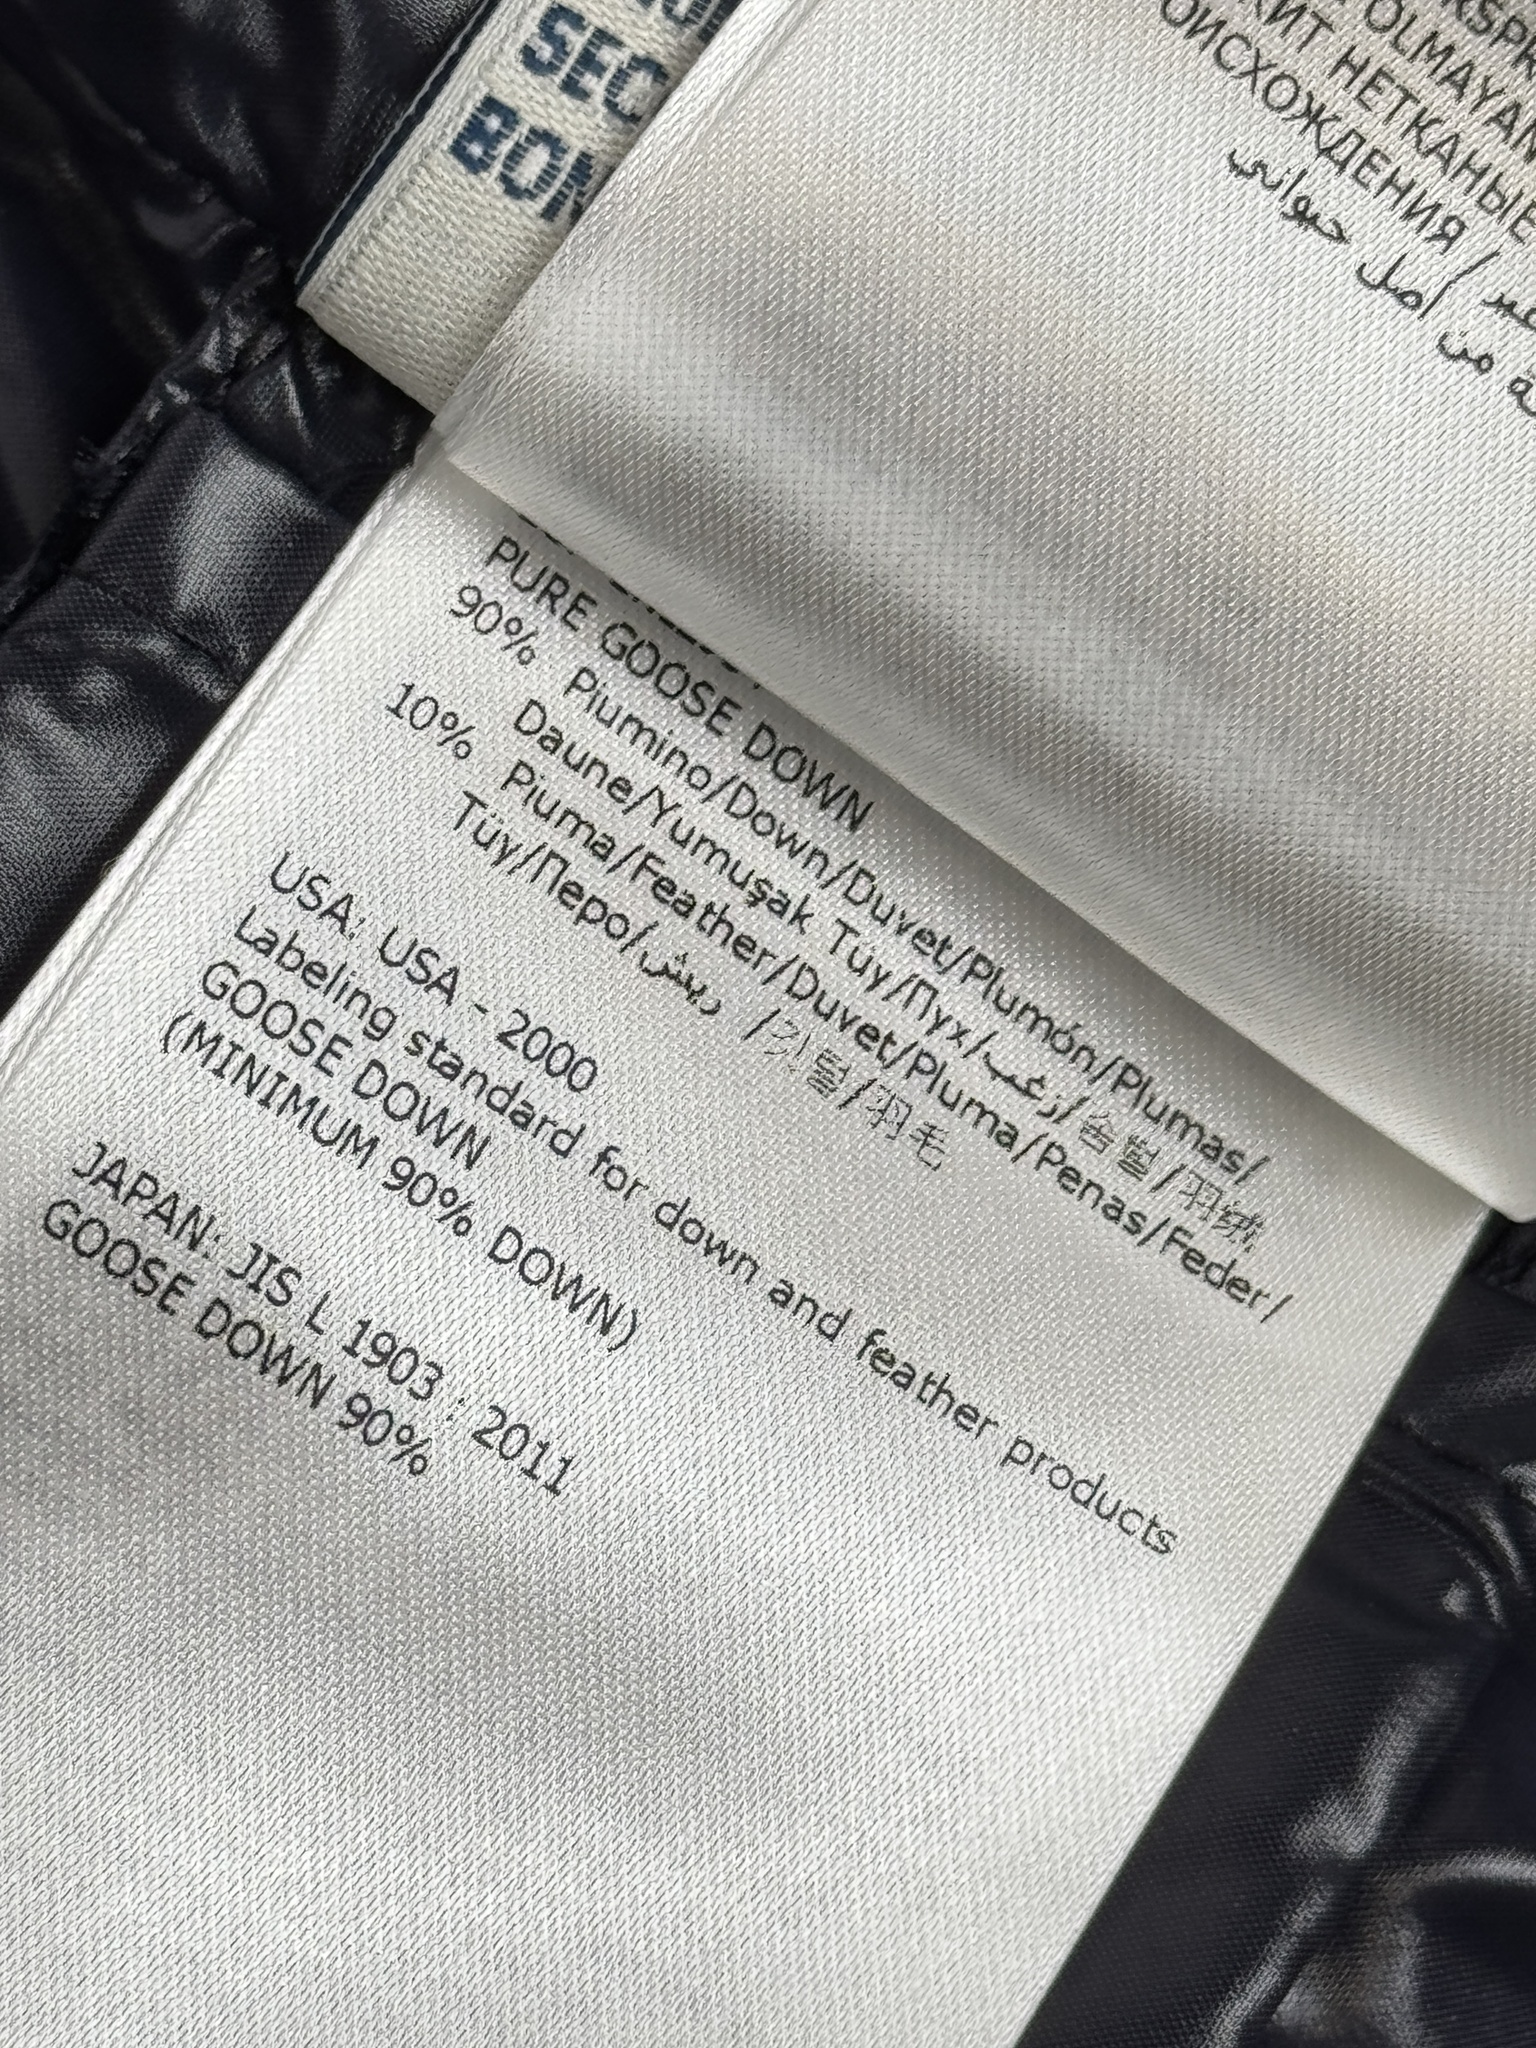 SEC
BON
OLMAYAN
НЕТКАНЫЕ
ОИСХОЖДЕНИЯ/
من أصل حيواني
PURE GOOSE DOWN
90% Piumino/Down/Duvet/Plumón/Plumas/
Daune/Yumuşak Tüy/Пух/زغب/솜털/羽绒
10% Piuma/Feather/Duvet/Pluma/Penas/Feder/
Tüy/Перо/ريش/깃털/羽毛
USA: USA - 2000
Labeling standard for down and feather products
GOOSE DOWN
(MINIMUM 90% DOWN)
JAPAN: JIS L 1903 : 2011
GOOSE DOWN 90%